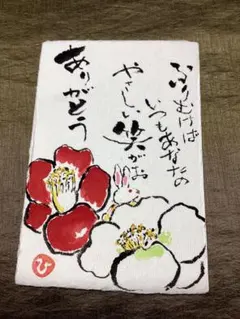 ふりむけば
いつもあなたの
やさしい笑がお
ありがとう
ひ